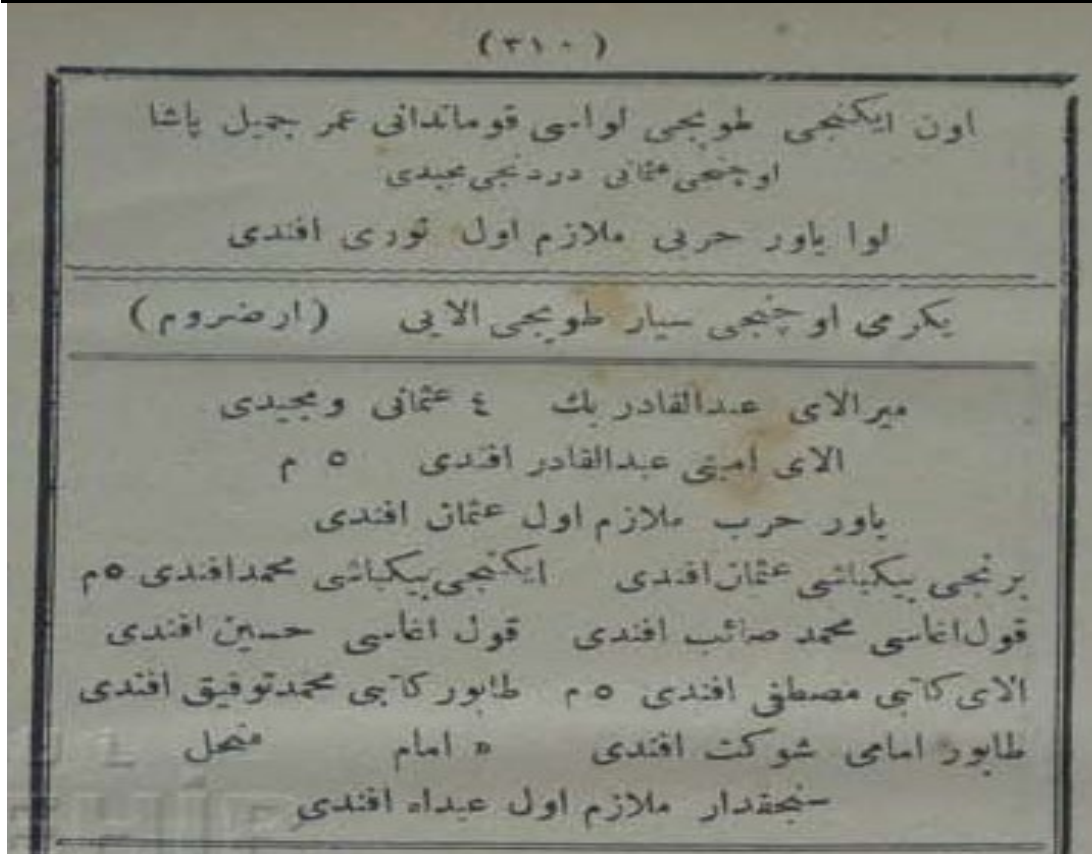 (٣١٠)
اون ایکنجی طوپجی لواسی قوماندانی عمر جمیل پاشا
اوچنجی عثمانی دردنجی مجیدی
لوا یاور حربی ملازم اول نوری افندی
یکرمی اوچنجی سیار طوپجی الایی (ارضروم)
میرالای عبدالقادر بك ٤ عثمانی ومجیدی
الای امینی عبدالقادر افندی ٥ م
یاور حرب ملازم اول عثمان افندی
برنجی بیکباشی عثمان افندی ایکنجی بیکباشی محمد افندی ٥ م
قول اغاسی محمد صائب افندی قول اغاسی حسین افندی
الای کاتبی مصطفی افندی ٥ م طابور کاتبی محمد توفیق افندی
طابور امامی شوکت افندی ه امام منحل
سنجقدار ملازم اول عبداه افندی